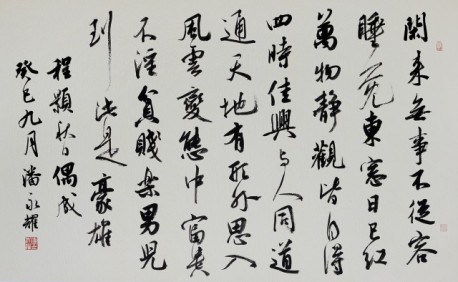 閑来無事不從容
睡覺東窓日已紅
萬物靜觀皆自得
四時佳興与人同道
通天地有形外思入
風雲變態中富貴
不淫貧賤樂男兒
到此是豪雄
程顥秋日偶成
癸巳九月潘永耀